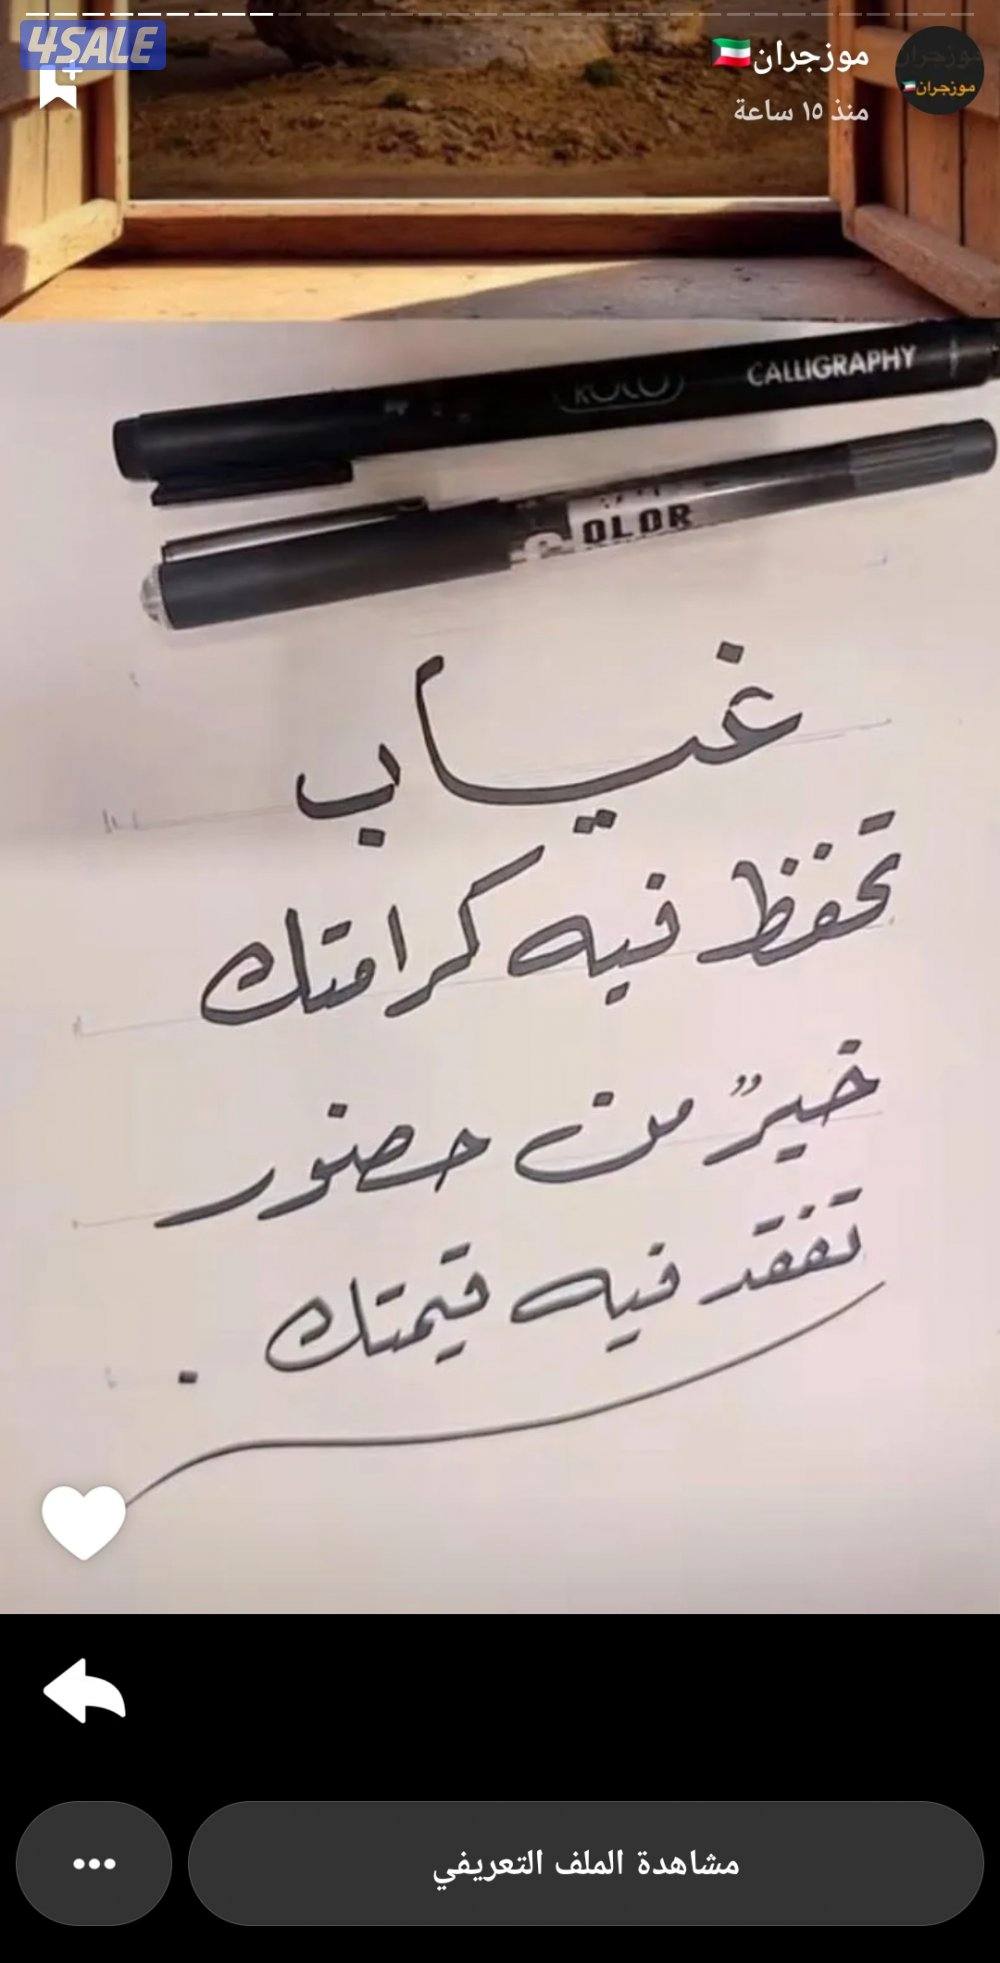 4SALE
موزجران🇰🇼
موزجران🇰🇼
منذ ١٥ ساعة
CALLIGRAPHY
OLOR
غياب
تحفظ فيه كرامتك
خيرٌ من حضور
تفقد فيه قيمتك .
مشاهدة الملف التعريفي